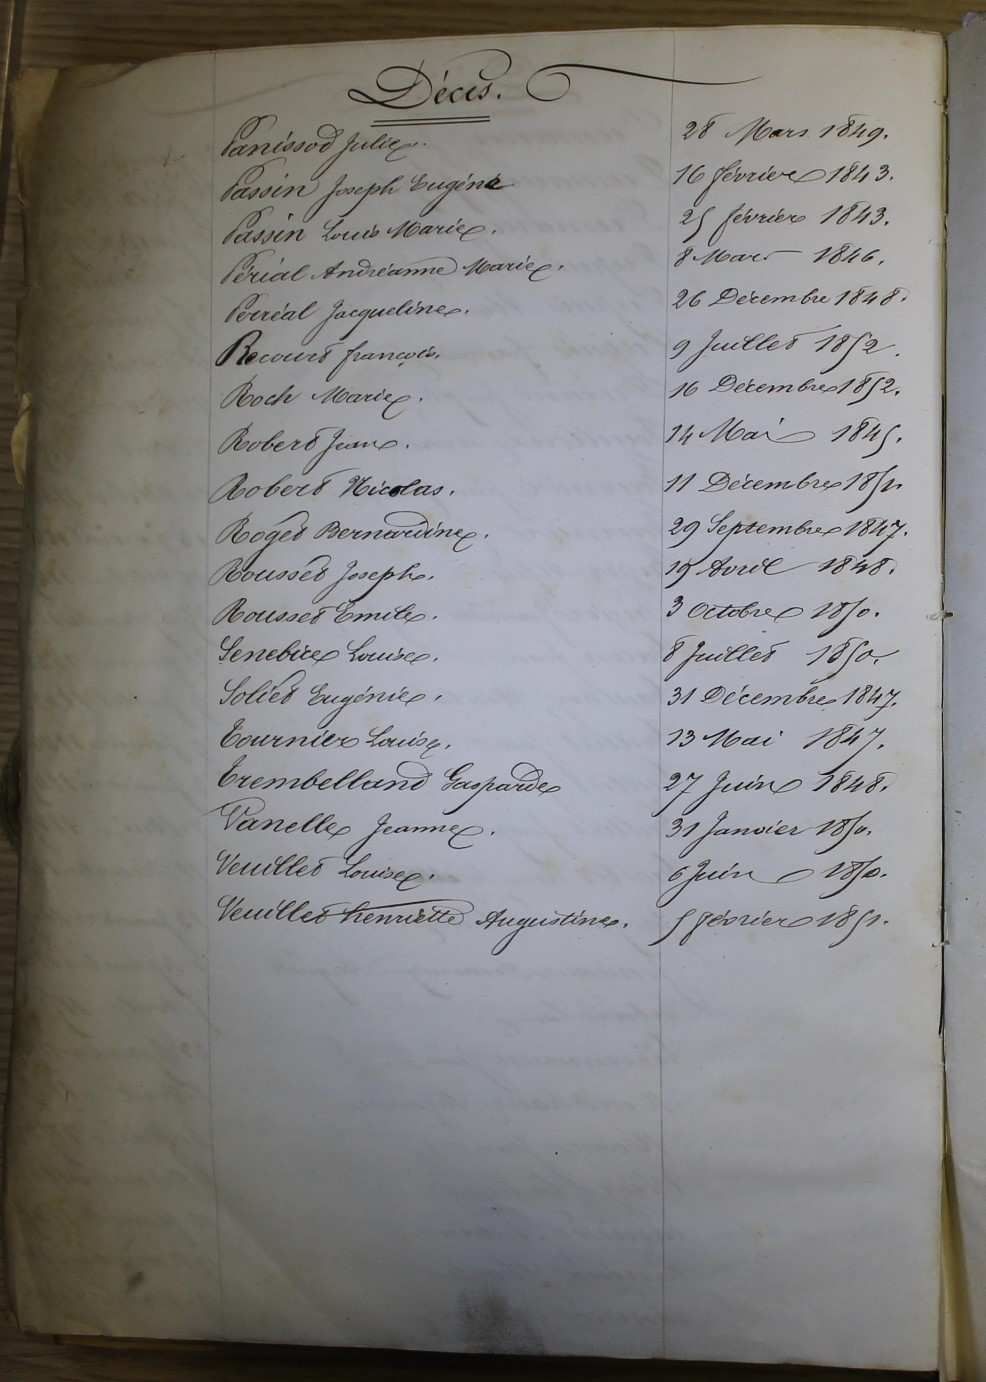 Décès.
Panissod Julie. 28 Mars 1849.
Passin Joseph Eugène 16 février 1843.
Passin Louis Marie. 25 février 1843.
Périal Andréanne Marie. 8 Mars 1846.
Perréal Jacqueline. 26 Décembre 1848.
Recourt françois. 9 Juillet 1852.
Roch Marie. 16 Décembre 1852.
Robert Jean. 14 Mai 1845.
Robert Nicolas. 11 Décembre 1851.
Roget Bernardine. 29 Septembre 1847.
Rousset Joseph. 19 Avril 1848.
Rousset Emile. 3 Octobre 1850.
Senebier Louise. 8 Juillet 1850.
Soliet Eugénie. 31 Décembre 1847.
Tournier Louise. 13 Mai 1847.
Trembelland Gasparde 27 Juin 1848.
Vanelle Jeanne. 31 Janvier 1850.
Veuillet Louise. 6 Juin 1850.
Veuillet henriette Augustine. 5 février 1851.